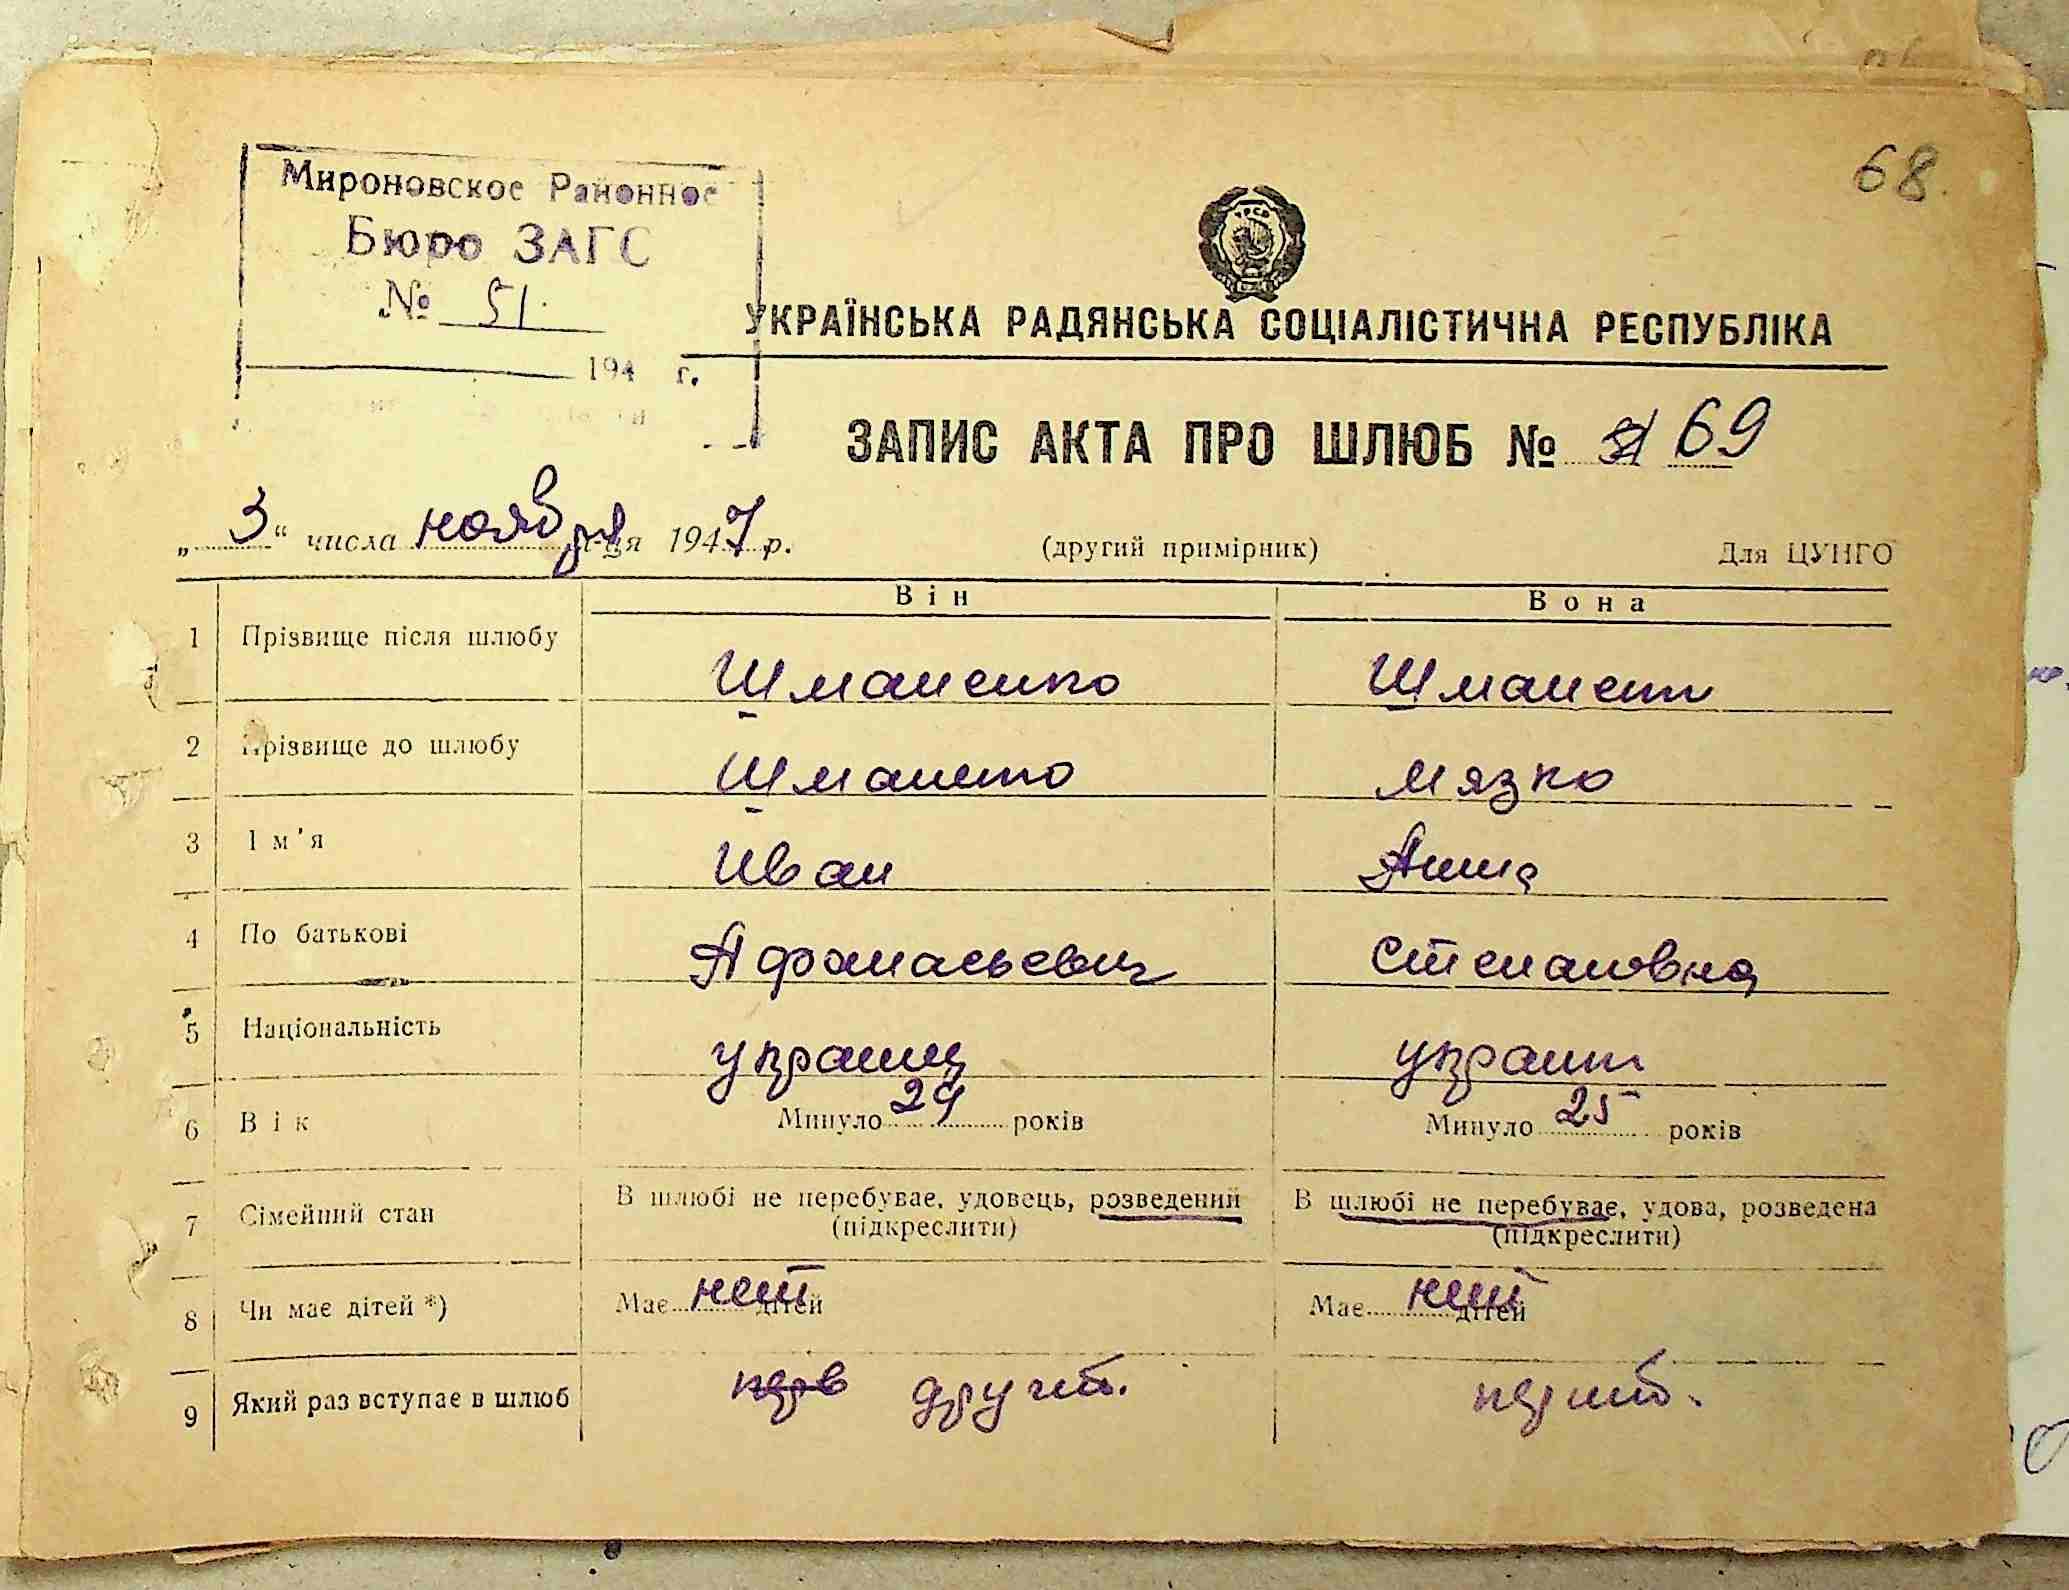 68.
Мироновское Районное
Бюро ЗАГС
№ 51.
194 г.
УКРАЇНСЬКА РАДЯНСЬКА СОЦІАЛІСТИЧНА РЕСПУБЛІКА
ЗАПИС АКТА ПРО ШЛЮБ № 69
„3“ числа ноября 1947 р. (другий примірник) Для ЦУНГО
Він Вона
1 Прізвище після шлюбу Шманенко
2 Прізвище до шлюбу Мязко
3 Ім'я Иван Анна
4 По батькові Афанасьевич Степановна
5 Національність украинц украин
6 Вік Минуло 29 років Минуло 25 років
7 Сімейний стан В шлюбі не перебуває, удовець, розведений В шлюбі не перебуває, удова, розведена
(підкреслити) (підкреслити)
8 Чи має дітей *) Має нет дітей Має нет дітей
9 Який раз вступає в шлюб перв другий.